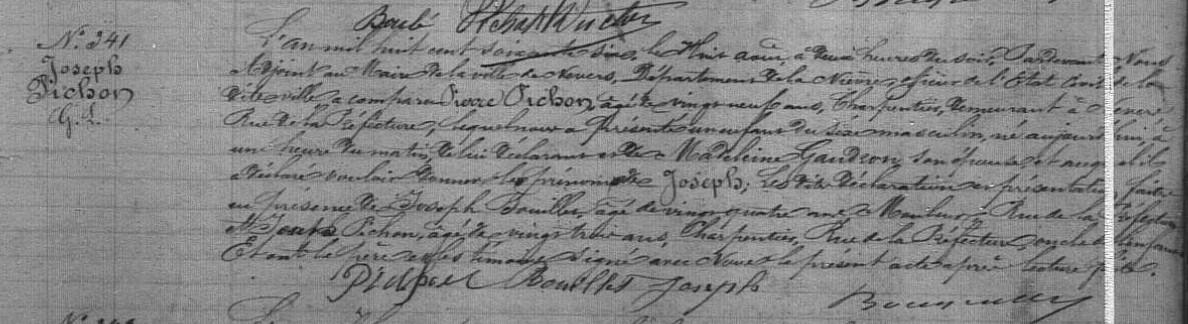 N.º 341
Joseph
Pichon
G. L.
L'an mil huit cent soixante six, le Huit août, à deux heures du soir, Pardevant Nous
Adjoint au Maire de la ville de Nevers, Département de la Nièvre officier de l'État Civil de la
dite ville, a comparu Pierre Pichon, âgé de vingt neuf ans, Charpentier, demeurant à Nevers
Rue de la Préfecture, lequel nous a présenté un enfant du sexe masculin, né aujourd'hui, à
une heure du matin, de lui déclarant et de Madeleine Gaudron, son épouse et auquel il
a déclaré vouloir donner le prénom de Joseph, Les dites déclaration et présentation faites
en présence de Joseph Bouillet, âgé de vingt quatre ans, Mouleur, Rue de la Préfecture
et Pichon, âgé de vingt trois ans, Charpentier, Rue de la Préfecture, oncle de l'enfant
Et ont le père et les témoins signé avec Nous le présent acte après lecture faite.
Joseph